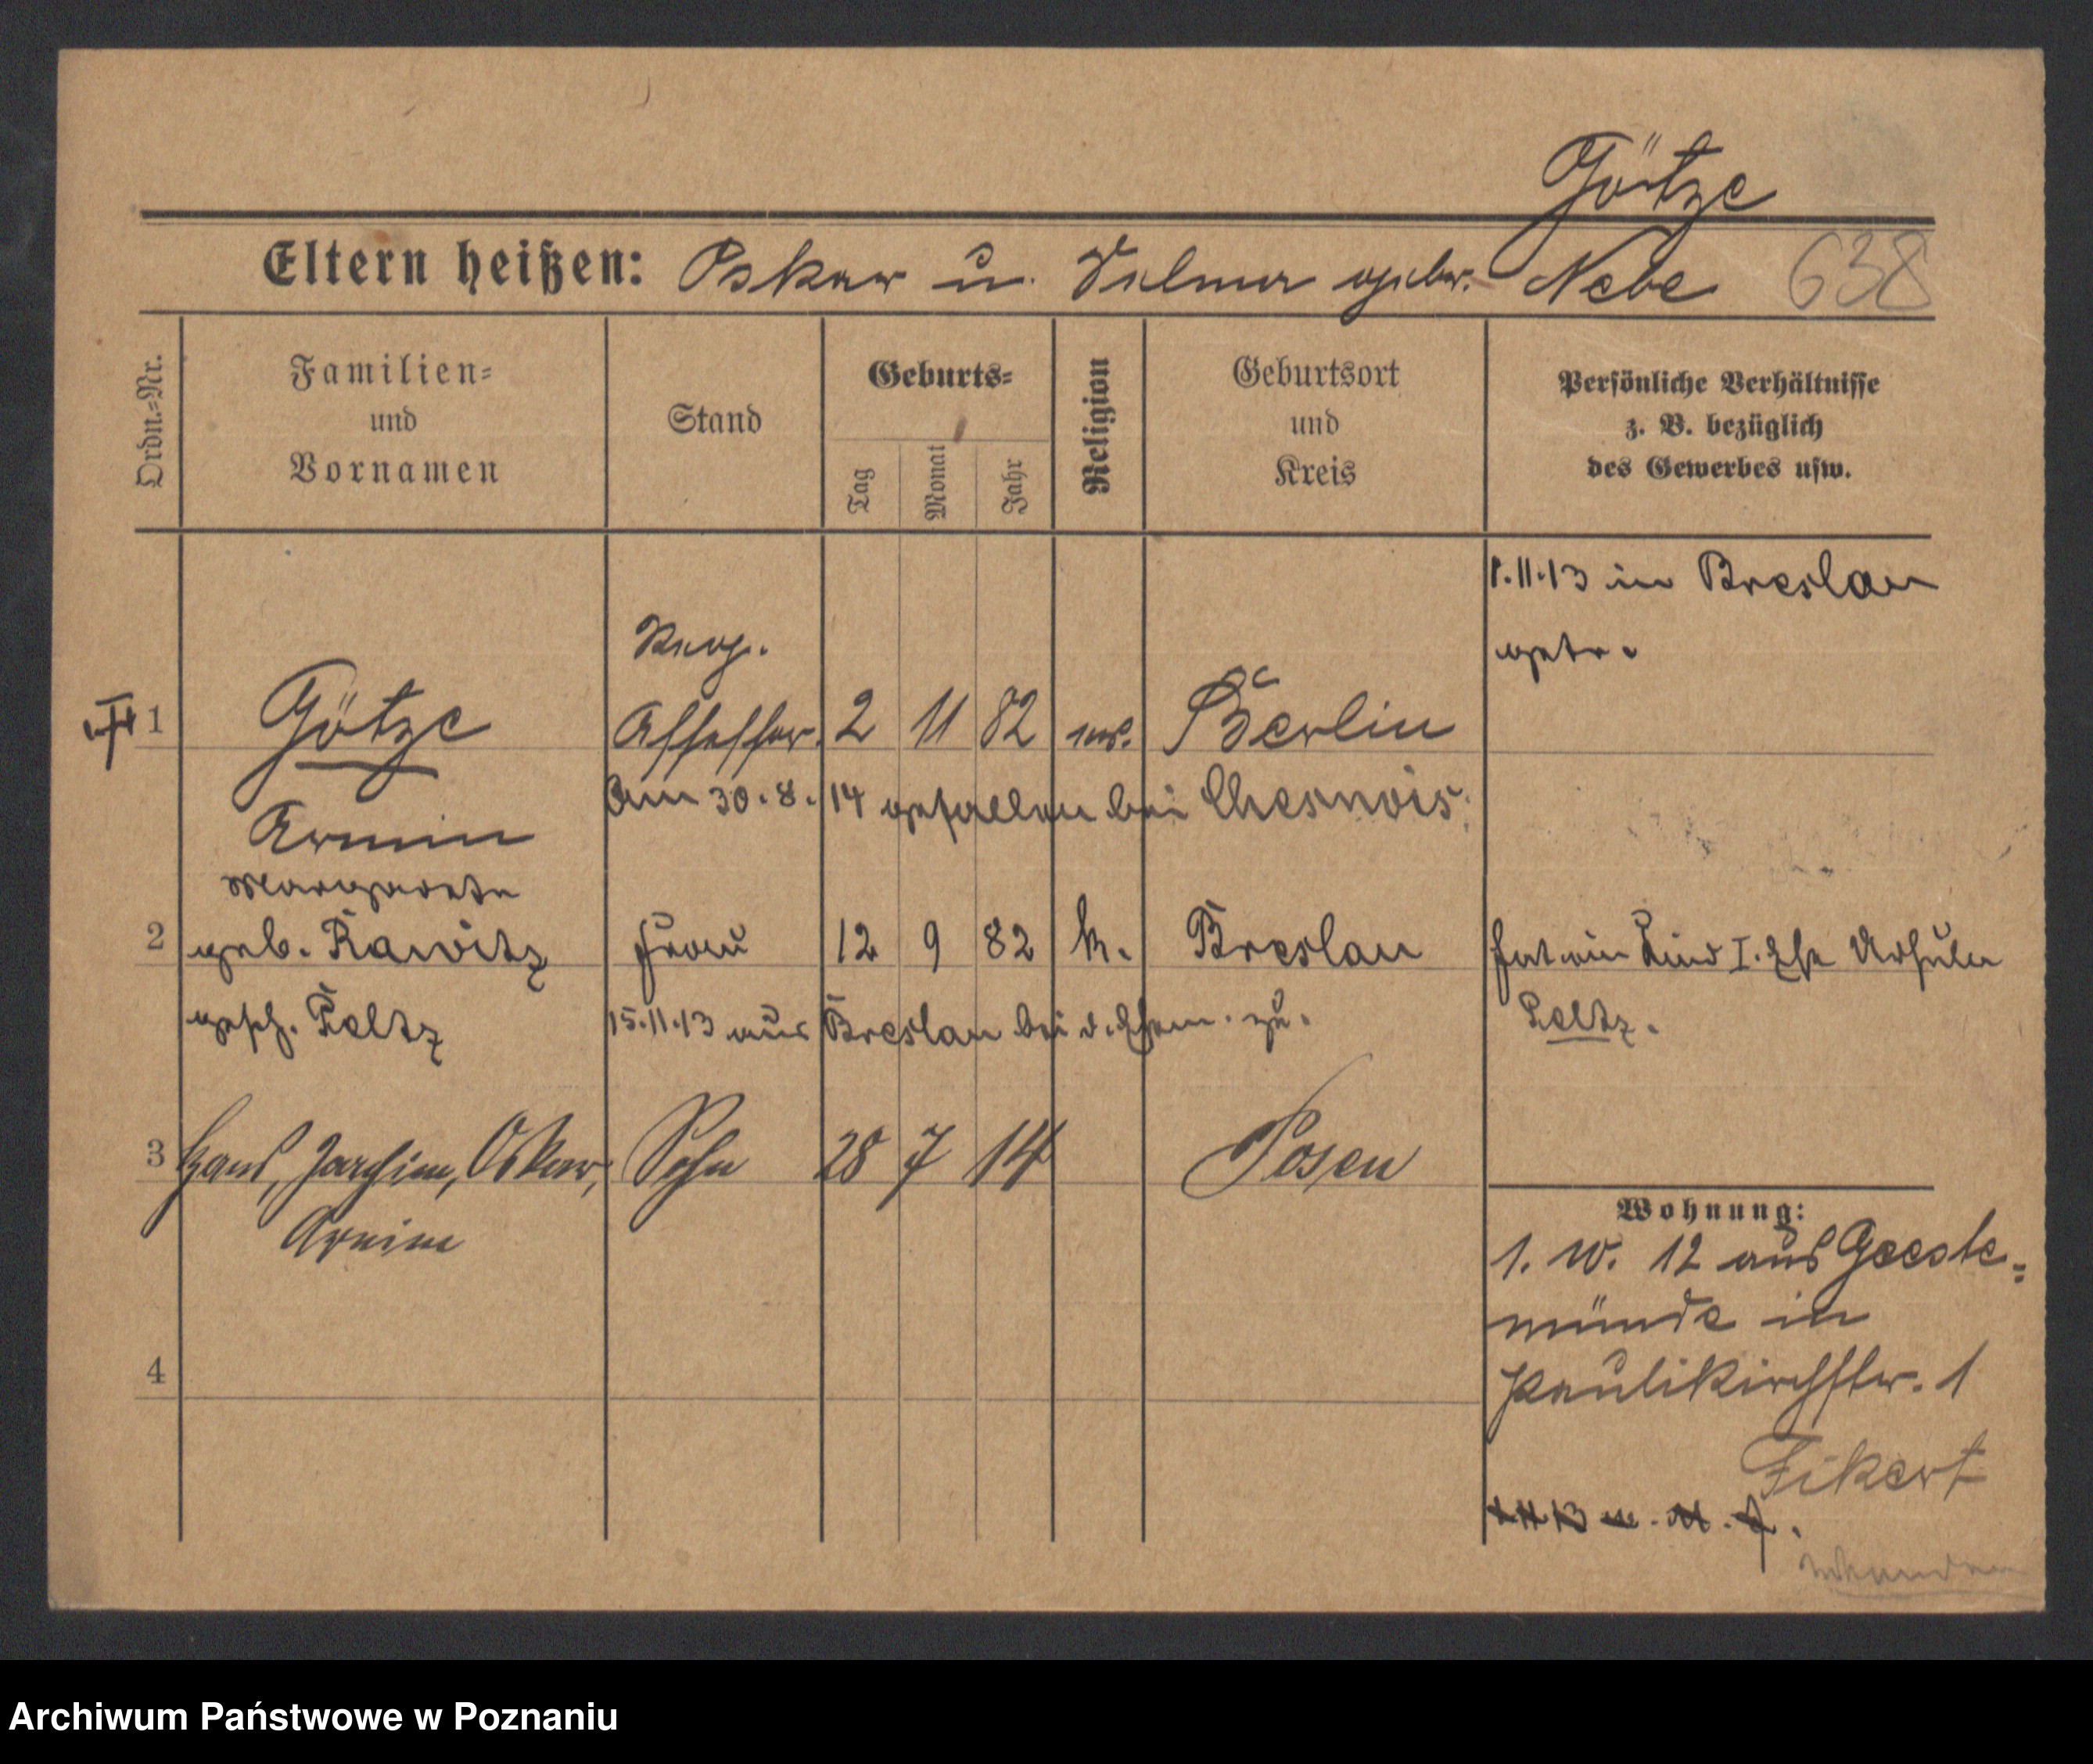 Götze
Eltern heißen: Oskar u. Selma gebr. Nebe 638
Ordn.=Nr.
Familien=
und
Vornamen
Stand
Geburts=
Tag
Monat
Jahr
Religion
Geburtsort
und
Kreis
Persönliche Verhältnisse
z. B. bezüglich
des Gewerbes usw.
1.11.13 in Breslau
getr.
Reg.
1 Götze Assessor. 2 11 82 Berlin
Am 30.8.14 gefallen bei Chesnois.
Armin
Margarete
2 geb. Rawitz Frau 12 9 82 k. Breslau hat ein Kind I. Ehe Ursula
gesch. Peltz 15.11.13 aus Breslau bei d. Ehem. zu. Peltz.
3 Hans, Joachim, Oskar, Sohn 28 7 14 Posen
Armin
Wohnung:
1. 10. 12 aus Geeste=
münde in
Paulikirchstr. 1
4
Fikert
Archiwum Państwowe w Poznaniu